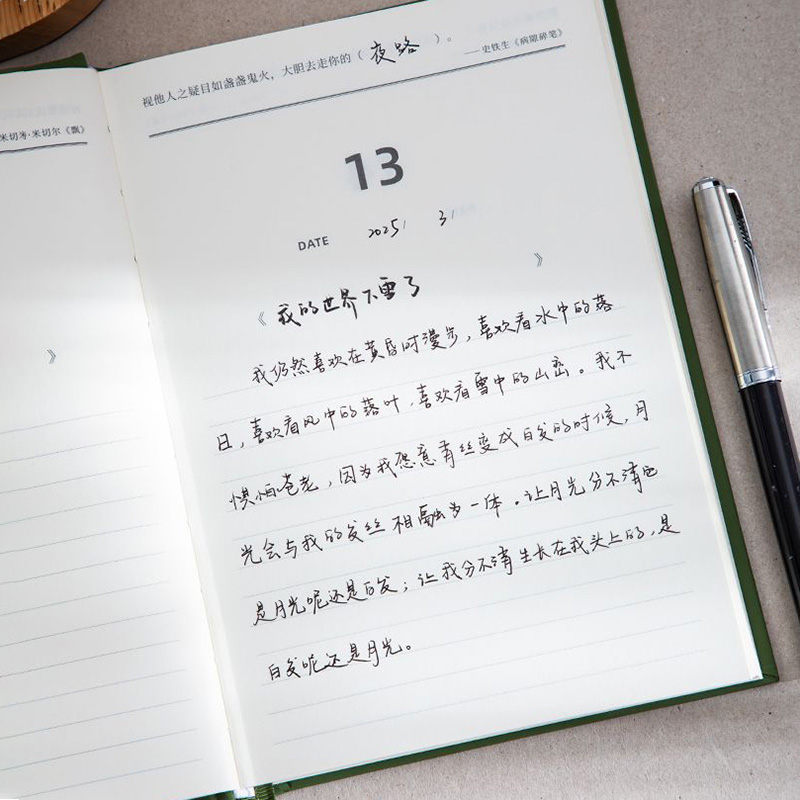 视他人之疑目如盏盏鬼火，大胆去走你的（夜路）。
——史铁生《病隙碎笔》
米切尔《飘》
13
DATE 2025/ 3/
《我的世界下雪了》
》
我仍然喜欢在黄昏时漫步，喜欢看水中的落
日，喜欢看风中的落叶，喜欢看雪中的山峦。我不
惧怕苍老，因为我愿意青丝变成白发的时候，月
光会与我的发丝相融为一体。让月光分不清它
是月光呢还是白发；让我分不清生长在我头上的，是
白发呢还是月光。